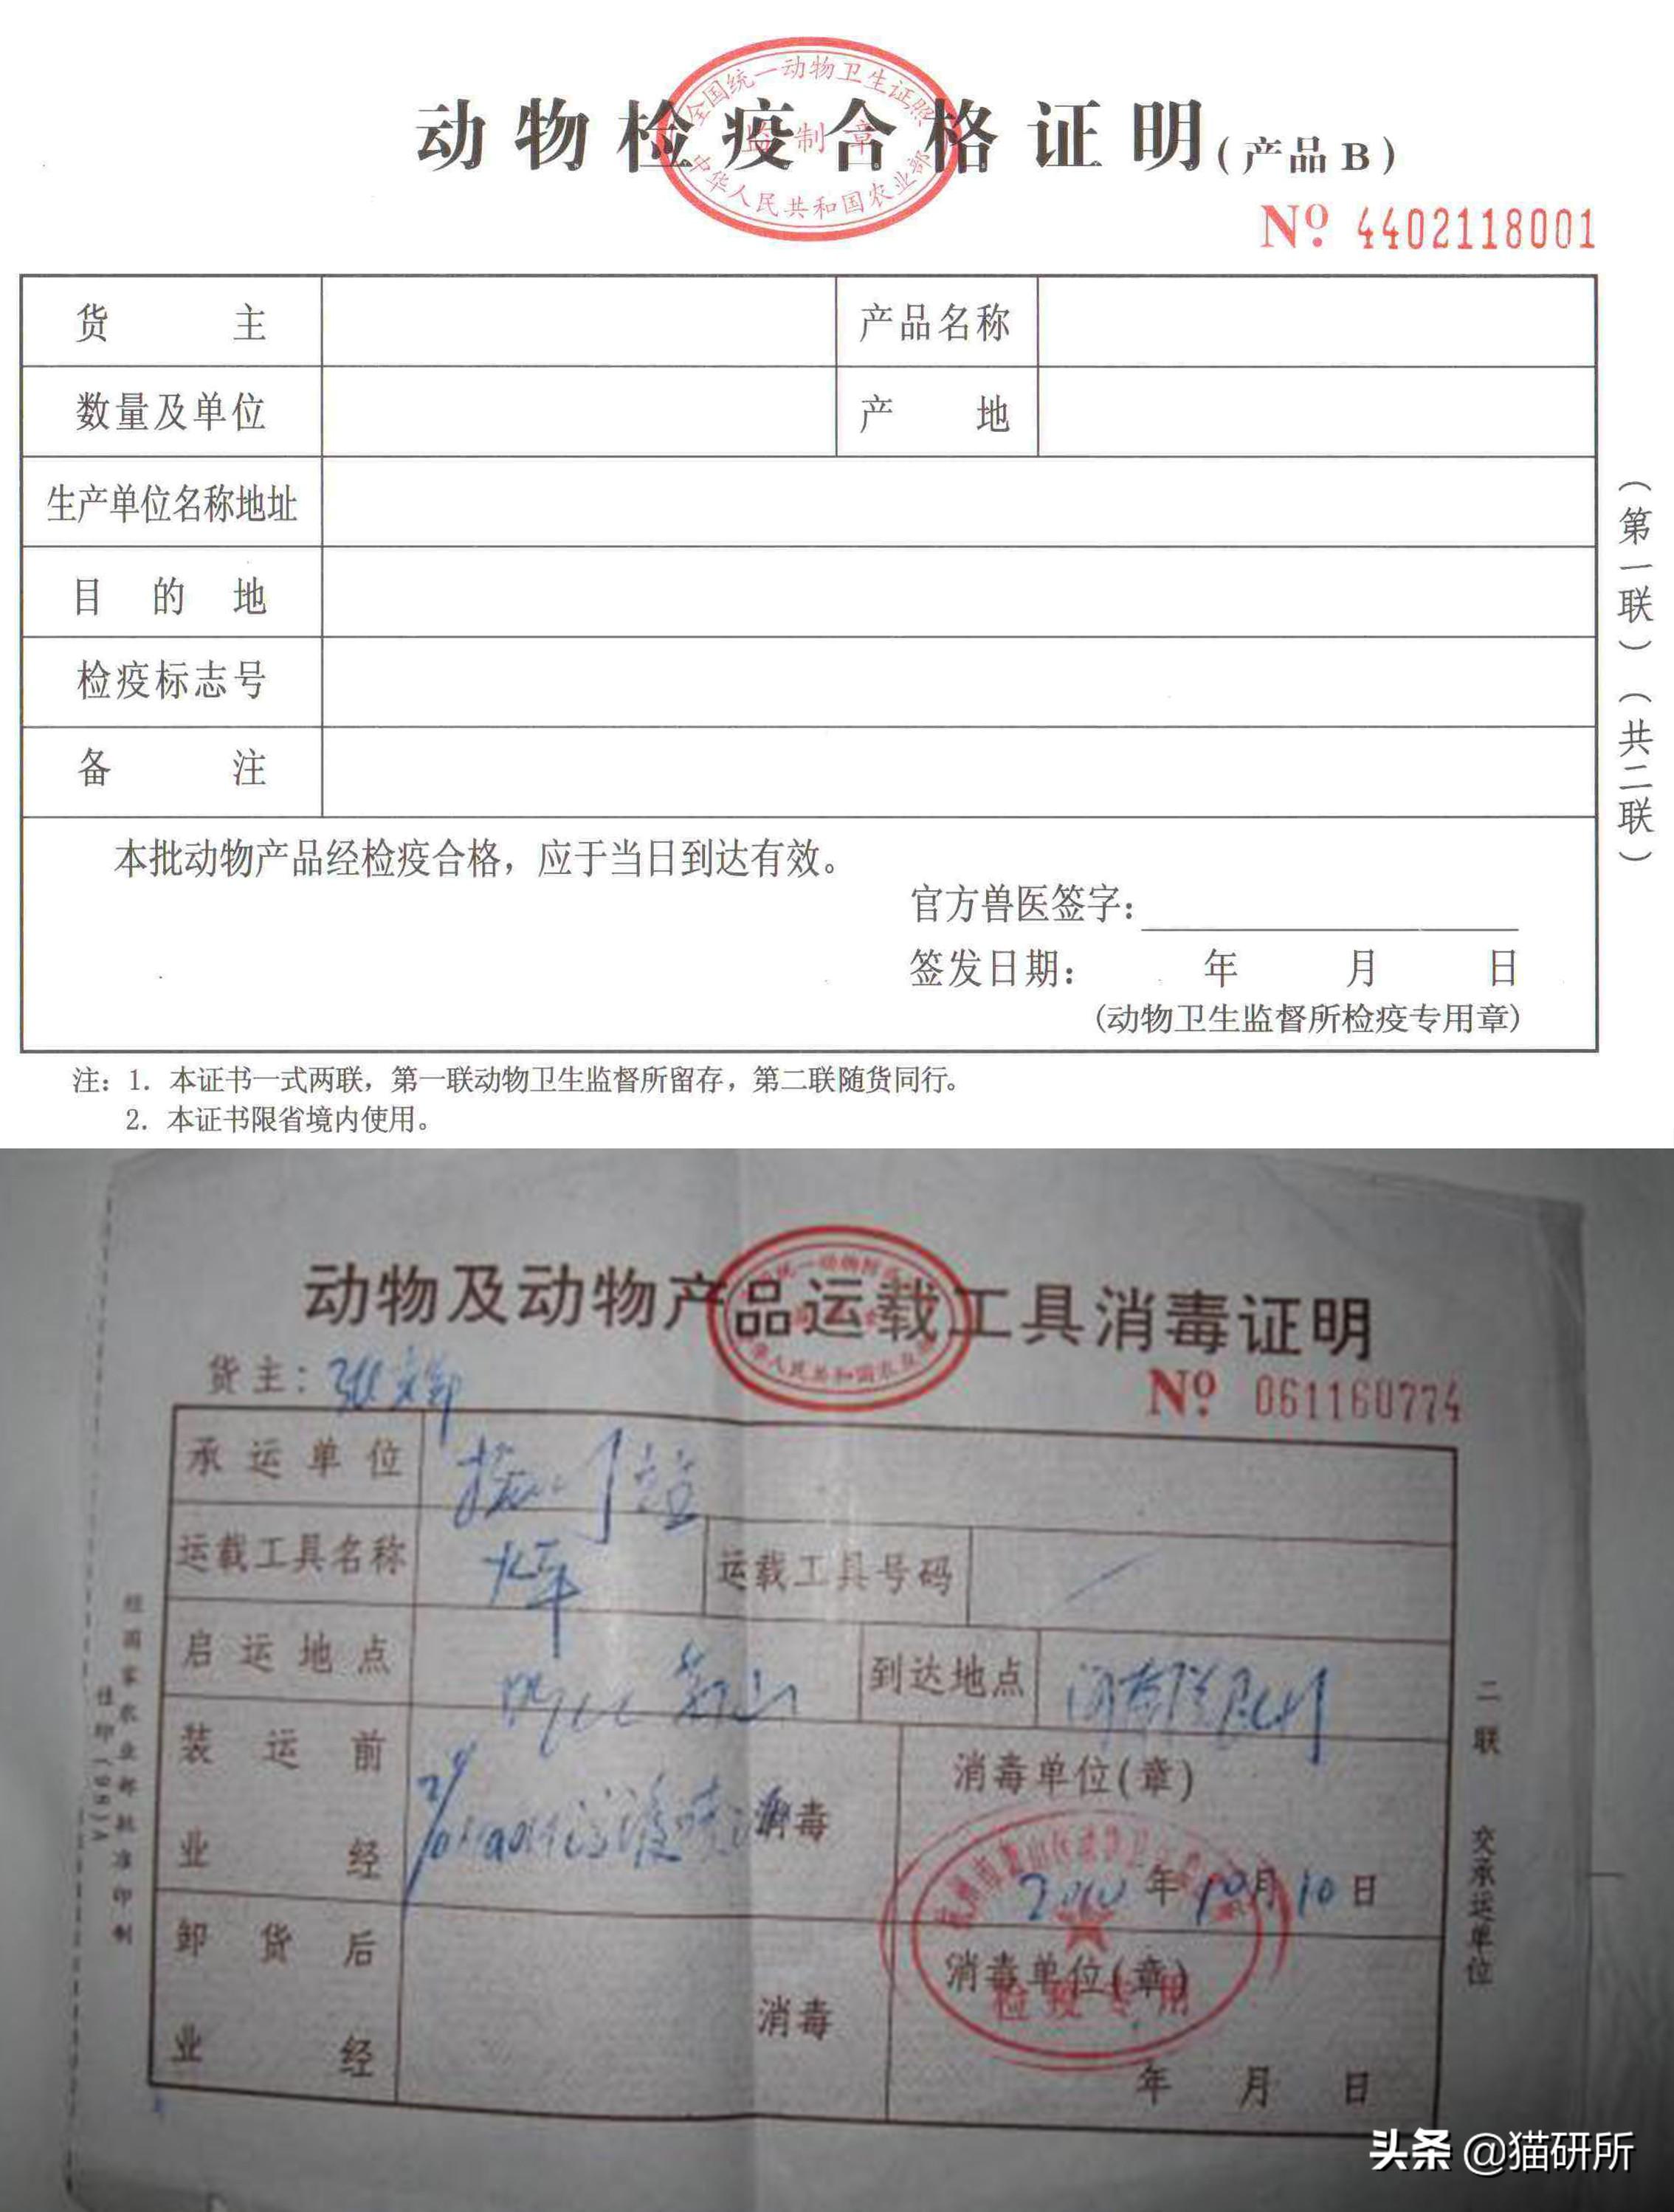 动物检疫合格证明(产品B)
全国统一动物卫生证照
监制章
中华人民共和国农业部
Nº 4402118001
货主 产品名称
数量及单位 产地
生产单位名称地址
目的地
检疫标志号
备注
本批动物产品经检疫合格，应于当日到达有效。
官方兽医签字：
签发日期： 年 月 日
(动物卫生监督所检疫专用章)
(第一联)(共二联)
注：1. 本证书一式两联，第一联动物卫生监督所留存，第二联随货同行。
2. 本证书限省境内使用。
动物及动物产品运载工具消毒证明
中华人民共和国农业部
货主：
Nº 061160774
承运单位
运载工具名称 火车 运载工具号码
启运地点 到达地点
装运前业经 消毒 消毒单位(章)
2010年10月10日
卸货后业经 消毒 消毒单位(章)
检疫专用
年 月 日
二联 交承运单位
经国家农业部批准印制
佳印(98)A
头条 @猫研所